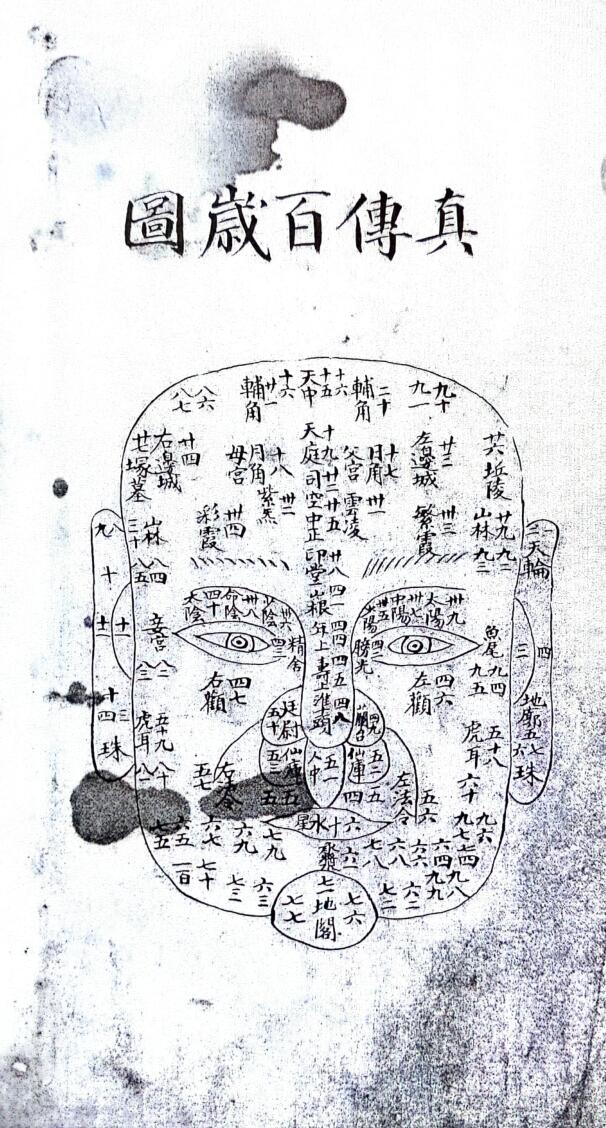 真傳百歲圖
天中
十五
十六
天庭
十九
司空
廿二
中正
廿五
印堂
廿八
山根
四一
年上
四四
壽上
四五
準頭
四八
人中
五一
水星
六十
地閣
七一
七六
七七
輔角
二十
九十
九一
日角
十七
父宮
左邊城
廿三
丘陵
山林
廿九
九二
九三
凌雲
卅一
繁霞
卅三
天輪
太陽
卅九
中陽
卅七
少陽
卅五
魚尾
九四
九五
左顴
四六
虎耳
五十八
仙庫
五二
左法令
五六
六十
九六
九七
七八
六八
六六
六四
七四
九八
九九
七二
六二
三
四
地廓
五
六
七
珠
輔角
廿一
十六
八六
八七
月角
十八
母宮
右邊城
廿四
塚墓
山林
三十
八四
八五
紫炁
卅二
彩霞
卅四
太陰
四十
中陰
卅八
少陰
卅六
精舍
妾宮
八二
八三
右顴
四七
廷尉
五十
虎耳
五十九
八十
八一
仙庫
五三
五七
七九
六九
六七
六五
七五
一百
七十
七三
六三
八
九
十
十一
十二
十三
十四
珠